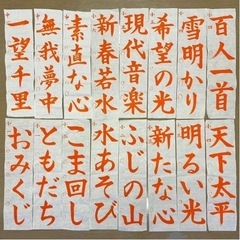 百人一首
雪明かり
希望の光
現代音楽
新春若水
素直な心
無我夢中
一望千里
天下太平
明るい光
新たな心
ふじの山
水あそび
こま回し
ともだち
おみくじ